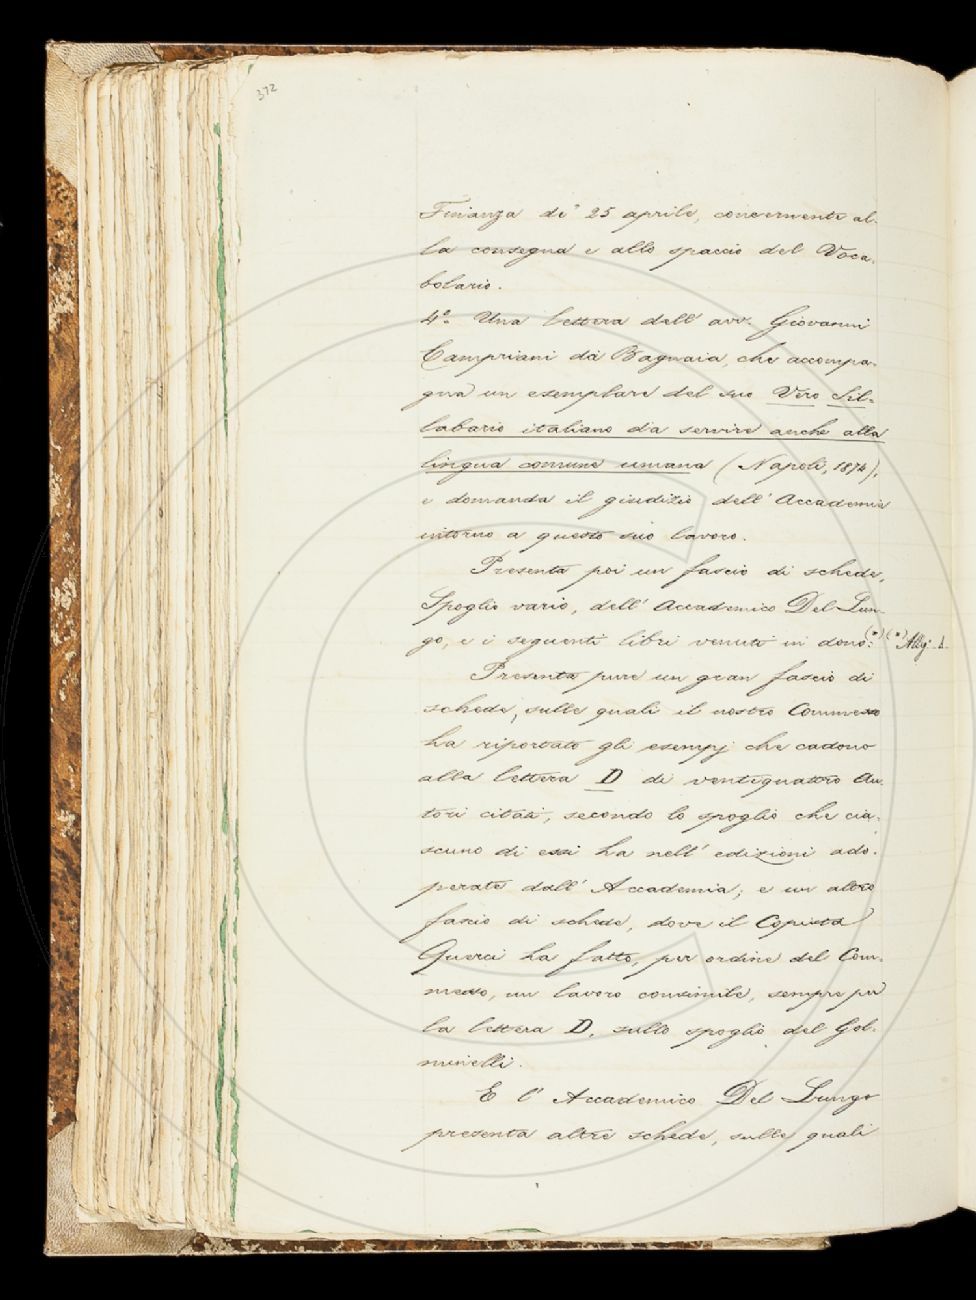 372
Finanza de' 25 aprile, concernente al-
la consegna e allo spaccio del Voca-
bolario.
4º. Una lettera dell' avv. Giovanni
Campriani da Bagnaia, che accompa-
gna un esemplare del suo Vero Sil-
labario italiano da servire anche alla
lingua comune umana (Napoli, 1874),
e domanda il giudizio dell' Accademia
intorno a questo suo lavoro.
Presenta poi un fascio di schede,
Spoglio vario, dell' Accademico Del Lun-
go, e i seguenti libri venuti in dono: (*)
(*) Alleg.
Presenta pure un gran fascio di
schede, sulle quali il nostro Commesso
ha riportato gli esempj che cadono
alla lettera D di ventiquattro Au-
tori citati, secondo lo spoglio che cia-
scuno di essi ha nell' edizioni ado-
perate dall' Accademia; e un altro
fascio di schede, dove il Copista
Querci ha fatto, per ordine del Com-
messo, un lavoro consimile, sempre per
la lettera D, sullo spoglio del Gel-
minelli.
E l' Accademico Del Lungo
presenta altre schede, sulle quali